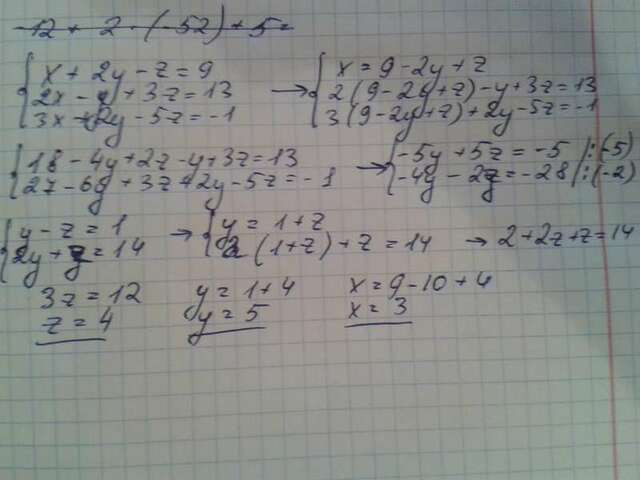 -12 + 2 · (-52) + 5 =
x + 2y - z = 9
2x - y + 3z = 13
3x + 2y - 5z = -1
→
x = 9 - 2y + z
2(9 - 2y + z) - y + 3z = 13
3(9 - 2y + z) + 2y - 5z = -1
18 - 4y + 2z - y + 3z = 13
27 - 6y + 3z + 2y - 5z = -1
→
-5y + 5z = -5 |:(-5)
-4y - 2z = -28 |:(-2)
y - z = 1
2y + z = 14
→
y = 1 + z
2(1+z) + z = 14
→ 2 + 2z + z = 14
3z = 12
z = 4
y = 1 + 4
y = 5
x = 9 - 10 + 4
x = 3